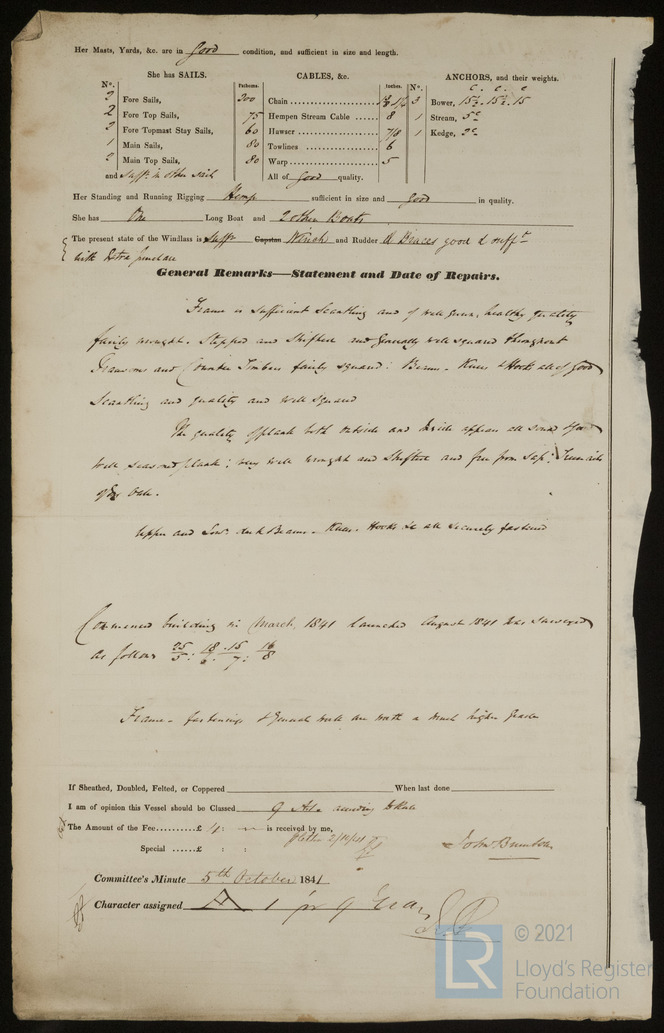 Her Masts, Yards, &c. are in Good condition, and sufficient in size and length.
She has SAILS. CABLES, &c. ANCHORS, and their weights.
N°. Fathoms. Inches. N°.
2 Fore Sails, 200 Chain 3 Bower, 15½. 15½. 15
2 Fore Top Sails, 75 Hempen Stream Cable 8 1 Stream, 5
2 Fore Topmast Stay Sails, 60 Hawser 1 Kedge, 2
1 Main Sails, 80 Towlines 6
2 Main Top Sails, 80 Warp 5
and Sufft. in other sails All of Good quality.
Her Standing and Running Rigging Hemp sufficient in size and good in quality.
She has One Long Boat and 2 other Boats
The present state of the Windlass is Sufft Capstan Winch and Rudder & Braces good & sufft
with
General Remarks—Statement and Date of Repairs.
Frame is sufficient Scantling and of well grown, healthy quality
fairly wrought. Stepped and Shifted and generally well squared throughout
Transoms and Counter Timbers fairly squared: Beams. Knees & Hooks all of Good
Scantling and quality and well squared
The quality of plank both outside and Inside appears all sound & good
well seasoned plank; very well wrought and Shifted and free from sap;
of Oak.
Upper and Lowr. deck Beams. Knees. Hooks &c all securely fastened
Commenced building in March, 1841 Launched August 1841 was Surveyed
As follows 25/5: 18/6. 15/7: 16/8
Frame. fastenings & General work are worth a much higher grade
If Sheathed, Doubled, Felted, or Coppered When last done
I am of opinion this Vessel should be Classed 9 A1. according to Rule
The Amount of the Fee £ 4: is received by me,
Special £ : :
John Brunton
Committee's Minute 5th October 1841
Character assigned A 1 for 9 Years
LR
© 2021
Lloyd's Register
Foundation